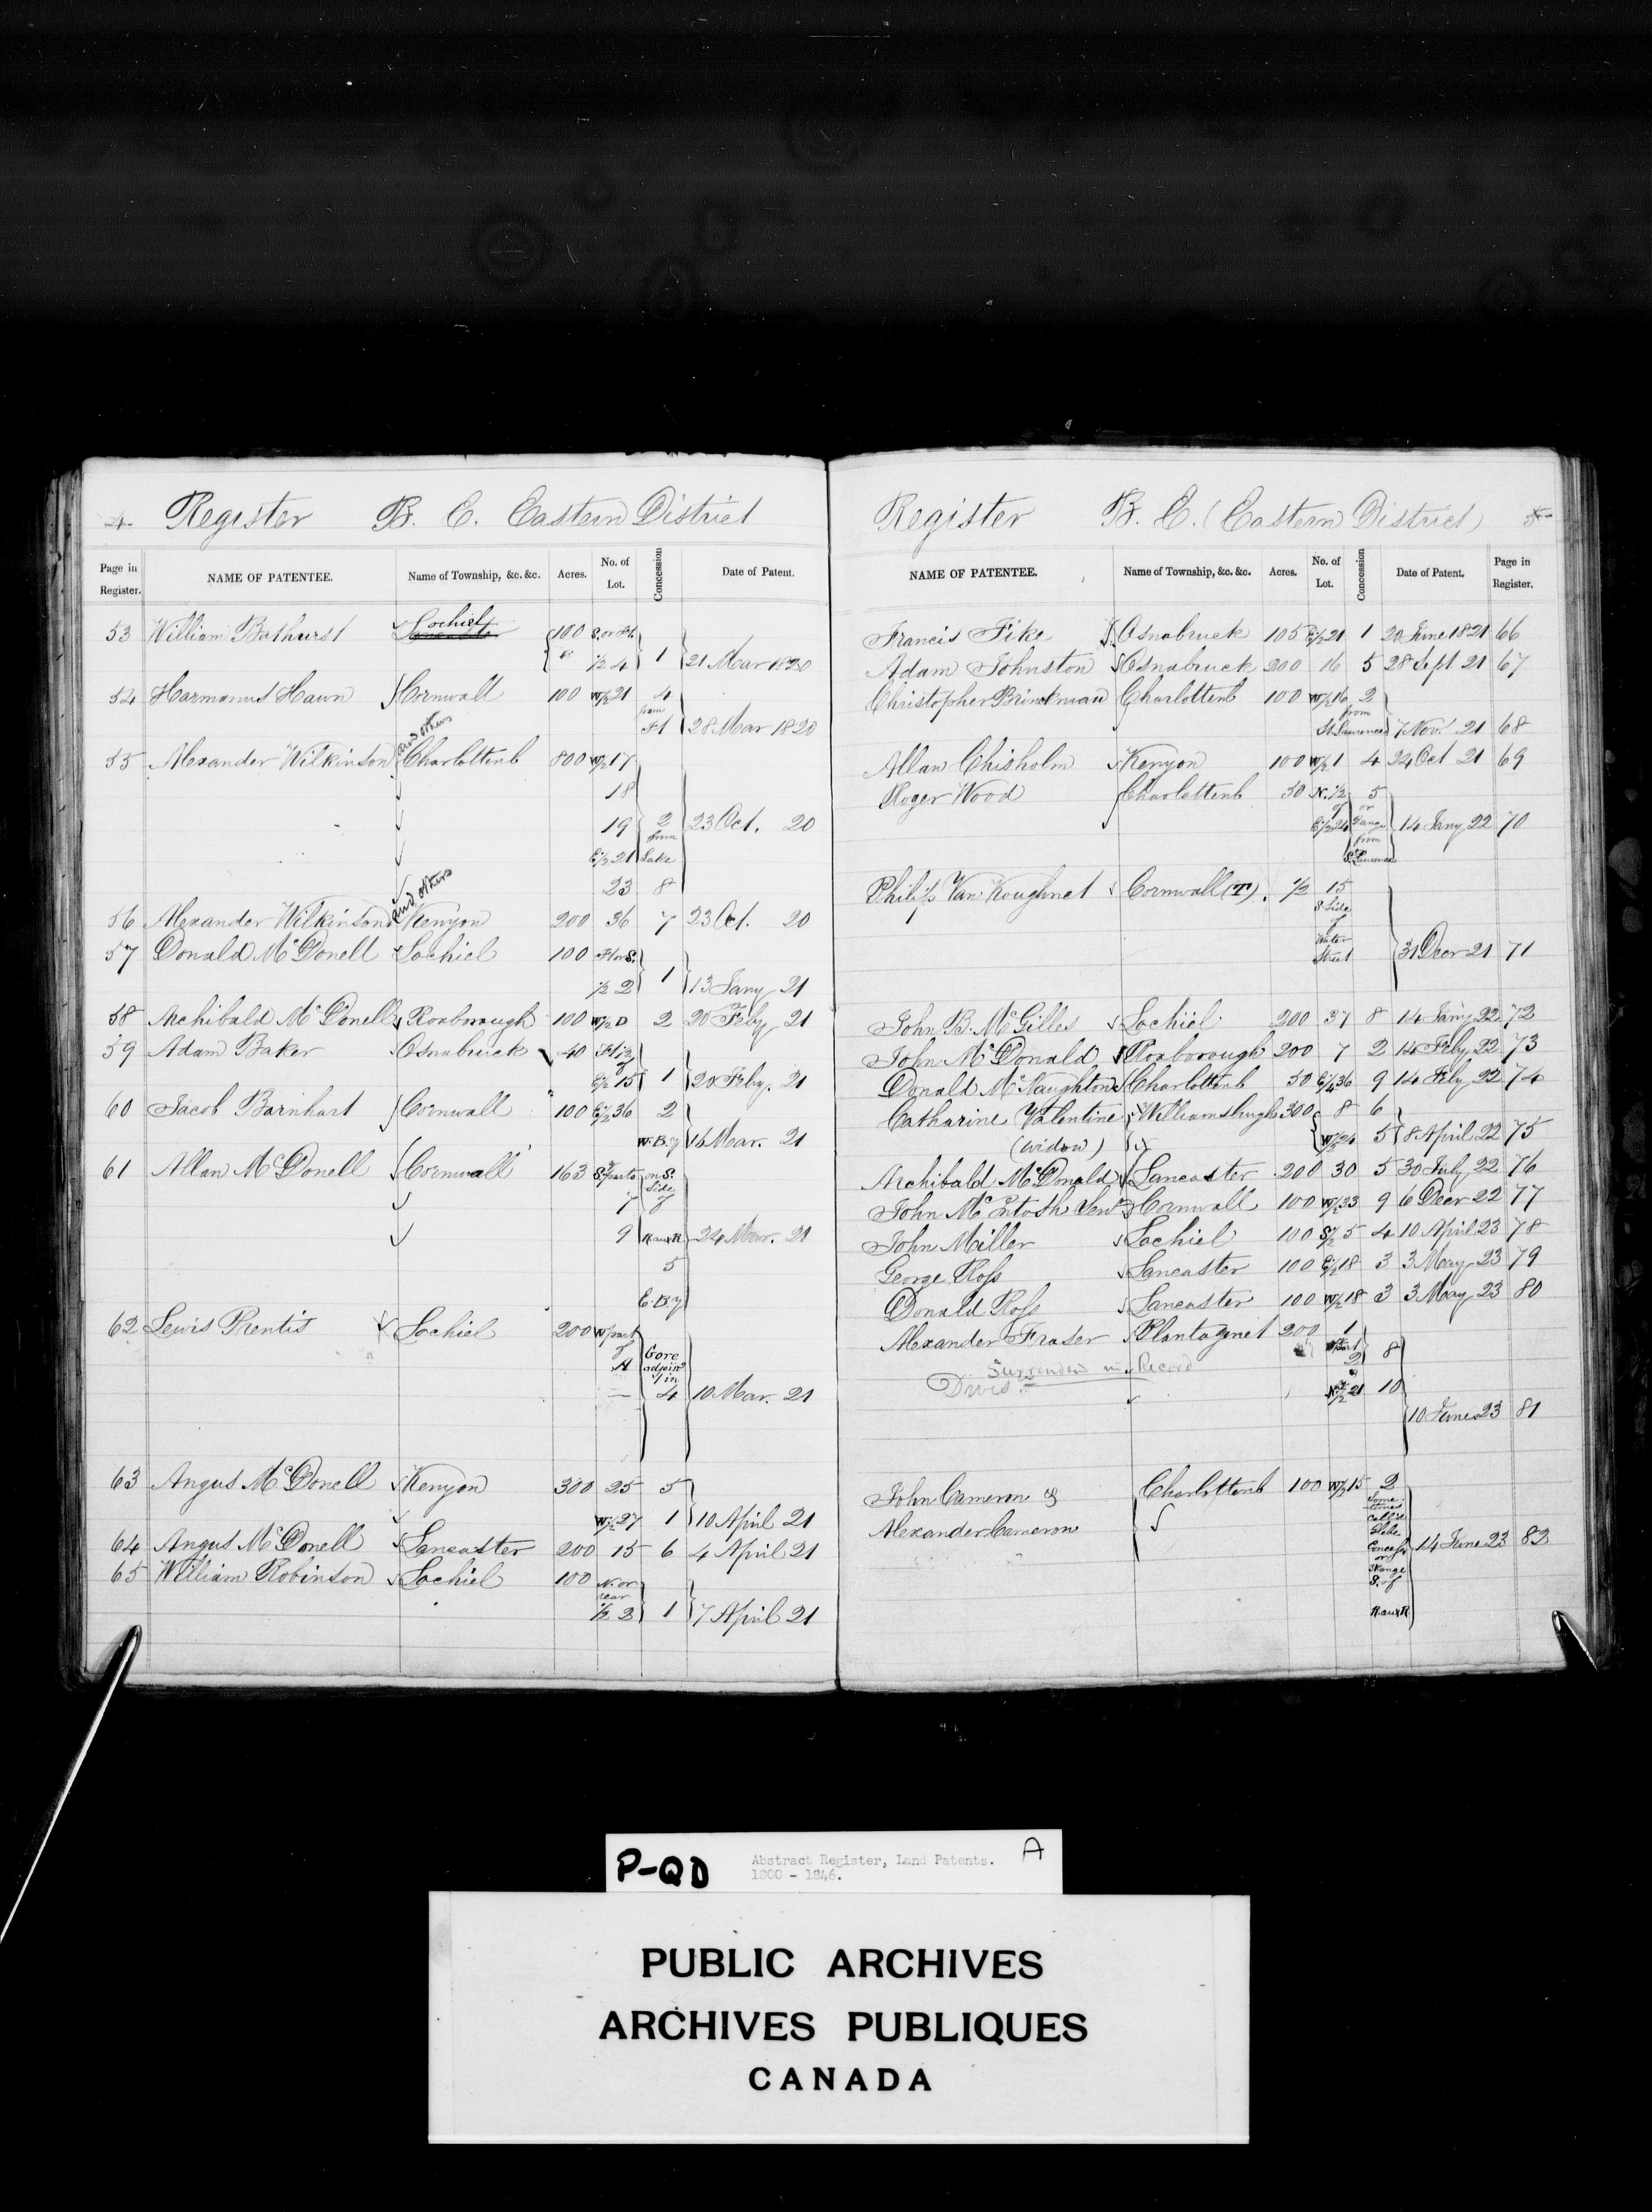 4 Register B. E. Eastern District
Page in Register. NAME OF PATENTEE. Name of Township, &c. &c. Acres. No. of Lot. Concession Date of Patent.
53 William Bathurst Lochiel 100 S. or Ft.
½ 4 1 21 Mar 1820
54 Harmanus Hawn Cornwall 100 W½ 21 4
from
Ft 28 Mar 1820
and others
55 Alexander Wilkinson Charlottenb 800 W½ 17
18
19 2 from 23 Oct. 20
E½ 21 Lake
23 8
and others
56 Alexander Wilkinson Kenyon 200 36 7 23 Oct. 20
57 Donald McDonell Lochiel 100 Ft or S.
½ 2 1 13 Jany 21
58 Archibald McDonell Roxborough 100 W½ D 2 20 Feby 21
59 Adam Baker Osnabruck 40 Ft ½
of
E½ 15 1 20 Feby. 21
60 Jacob Barnhart Cornwall 100 E½ 36 2
W.B.y 16 Mar. 21
61 Allan McDonell Cornwall 163 S. parts on S.
Side
7 of
9 R. aux R. 24 Mar. 21
5
E.B.y
62 Lewis Prentis Lochiel 200 W part
of Gore
A adjoing
1 in
4 10 Mar. 21
63 Angus McDonell Kenyon 300 25 5
W½ 27 1 10 April 21
64 Angus McDonell Lancaster 200 15 6 4 April 21
65 William Robinson Lochiel 100 N. or
rear
½ 2 1 7 April 21
Register B. E. (Eastern District) 5
NAME OF PATENTEE. Name of Township, &c. &c. Acres. No. of Lot. Concession Date of Patent. Page in Register.
Francis Fike Osnabruck 105 E½ 21 1 20 June 1821 66
Adam Johnston Osnabruck 200 16 5 28 Sept 21 67
Christopher Brinckman Charlottenb 100 W½ 16 2
from
St. Lawrence 7 Nov. 21 68
Allan Chisholm Kenyon 100 W½ 1 4 24 Oct 21 69
Roger Wood Charlottenb 50 N. ½ 5
of or
E½ 24 Range 14 Jany 22 70
from
St. Lawrence
Philip Van Koughnet Cornwall (T) ½ 15
S Side
of
Water
Street 31 Decr 21 71
John B. McGilles Lochiel 200 37 8 14 Jany 22 72
John McDonald Roxborough 200 7 2 14 Feby 22 73
Donald McNaughton Charlottenb 50 E¼ 36 9 14 Feby 22 74
Catharine Valentine Williamsburgh 300 8 6
(widow) W½ 26 5 8 April 22 75
Archibald McDonald Lancaster 200 30 5 30 July 22 76
John McIntosh Senr Cornwall 100 W½ 33 9 6 Decr 22 77
John Miller Lochiel 100 S½ 5 4 10 April 23 78
George Ross Lancaster 100 E½ 18 3 3 May 23 79
Donald Ross Lancaster 100 W½ 18 3 3 May 23 80
Alexander Fraser Plantagenet 200 1
part
2 8
Surrendered in Record
N½ 21 10
10 June 23 81
John Cameron & Charlottenb 100 W½ 15 2
Alexander Cameron Some-
times
call'd
Glebe
Concessn 14 June 23 82
or
Range
S. of
R. aux R.
P-QD Abstract Register, Land Patents. A
1800 - 1846.
PUBLIC ARCHIVES
ARCHIVES PUBLIQUES
CANADA